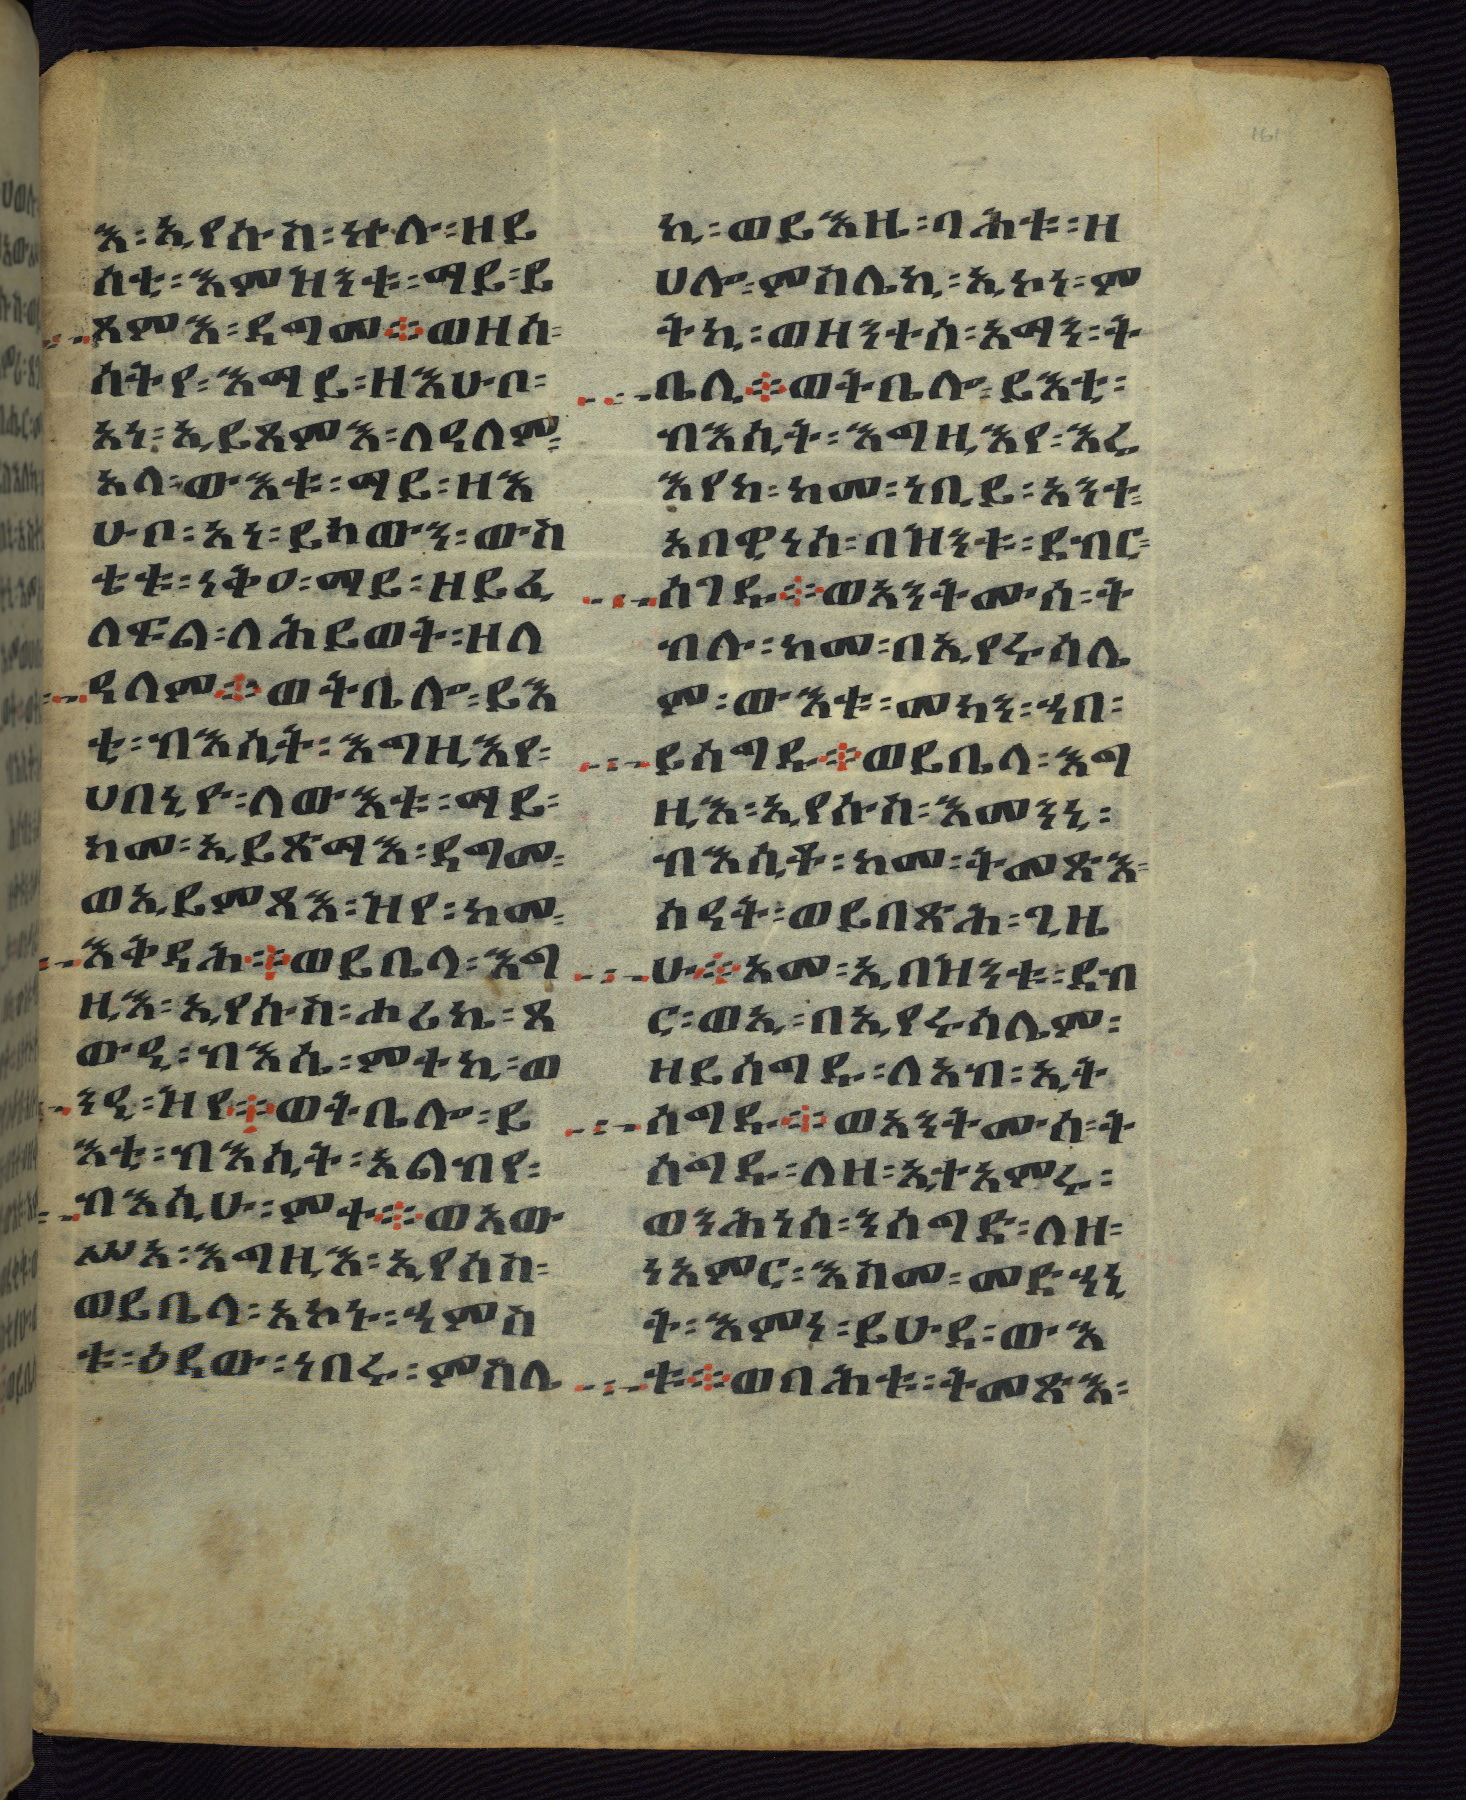 እ፡ኢየሱስ፡ኵሉ፡ዘይ
ሰቲ፡እምዝንቱ፡ማይ፡ይ
ጸምእ፡ዳግመ፨ወዘሰ፡
ሰትየ፡እማይ፡ዘእሁቦ፡
አነ፡ኢይጸምእ፡ለዓለም፡
አላ፡ውእቱ፡ማይ፡ዘእ
ሁቦ፡አነ፡ይከውን፡ውስ
ቴቱ፡ነቅዐ፡ማይ፡ዘይፈ
ለፍል፡ለሕይወት፡ዘለ
ዓለም፨ወትቤሎ፡ይእ
ቲ፡ብእሲት፡እግዚእየ፡
ሀበኒዮ፡ለውእቱ፡ማይ፡
ከመ፡ኢይጽማእ፡ዳግመ፡
ወኢይምጻእ፡ዝየ፡ከመ፡
እቅዳሕ፨ወይቤላ፡እግ
ዚእ፡ኢየሱስ፡ሑሪኬ፡ጸ
ውዒ፡ብእሴ፡ምተኪ፡ወ
ንዒ፡ዝየ፨ወትቤሎ፡ይ
እቲ፡ብእሲት፡አልብየ፡
ብእሲሁ፡ምተ፨ወአው
ሥአ፡እግዚእ፡ኢየሰስ፡
ወይቤላ፡አኮኑ፡ኃምስ
ቱ፡ዕደው፡ነበሩ፡ምስሌ
ኪ፡ወይእዜ፡ባሕቱ፡ዘ
ሀሎ፡ምስሌኪ፡ኢኮነ፡ም
ትኪ፡ወዘንተሰ፡አማን፡ት
ቤሊ፨ወትቤሎ፡ይእቲ፡
ብእሲት፡እግዚእየ፡እሬ
እየከ፡ከመ፡ነቢይ፡አንተ፡
አበዊነሰ፡በዝንቱ፡ደብር፡
ሰገዱ፨ወአንትሙሰ፡ት
ብሉ፡ከመ፡በኢየሩሳሌ
ም፡ውእቱ፡መካን፡ኃበ፡
ይሰግዱ፨ወይቤላ፡እግ
ዚእ፡ኢየሱስ፡እመንኒ፡
ብእሲቶ፡ከመ፡ትመጽእ፡
ሰዓት፡ወይበጽሕ፡ጊዜ
ሁ፨አመ፡ኢበዝንቱ፡ደብ
ር፡ወኢ፡በኢየሩሳሌም፡
ዘይሰግዱ፡ለአብ፡ኢት
ሰግዱ፨ወአንትሙሰ፡ት
ሰግዱ፡ለዘ፡ኢተአምሩ፡
ወንሕነሰ፡ንሰግድ፡ለዘ፡
ነአምር፡እስመ፡መድኃኒ
ት፡እምነ፡ይሁዳ፡ውእ
ቱ፨ወባሕቱ፡ትመጽእ፡